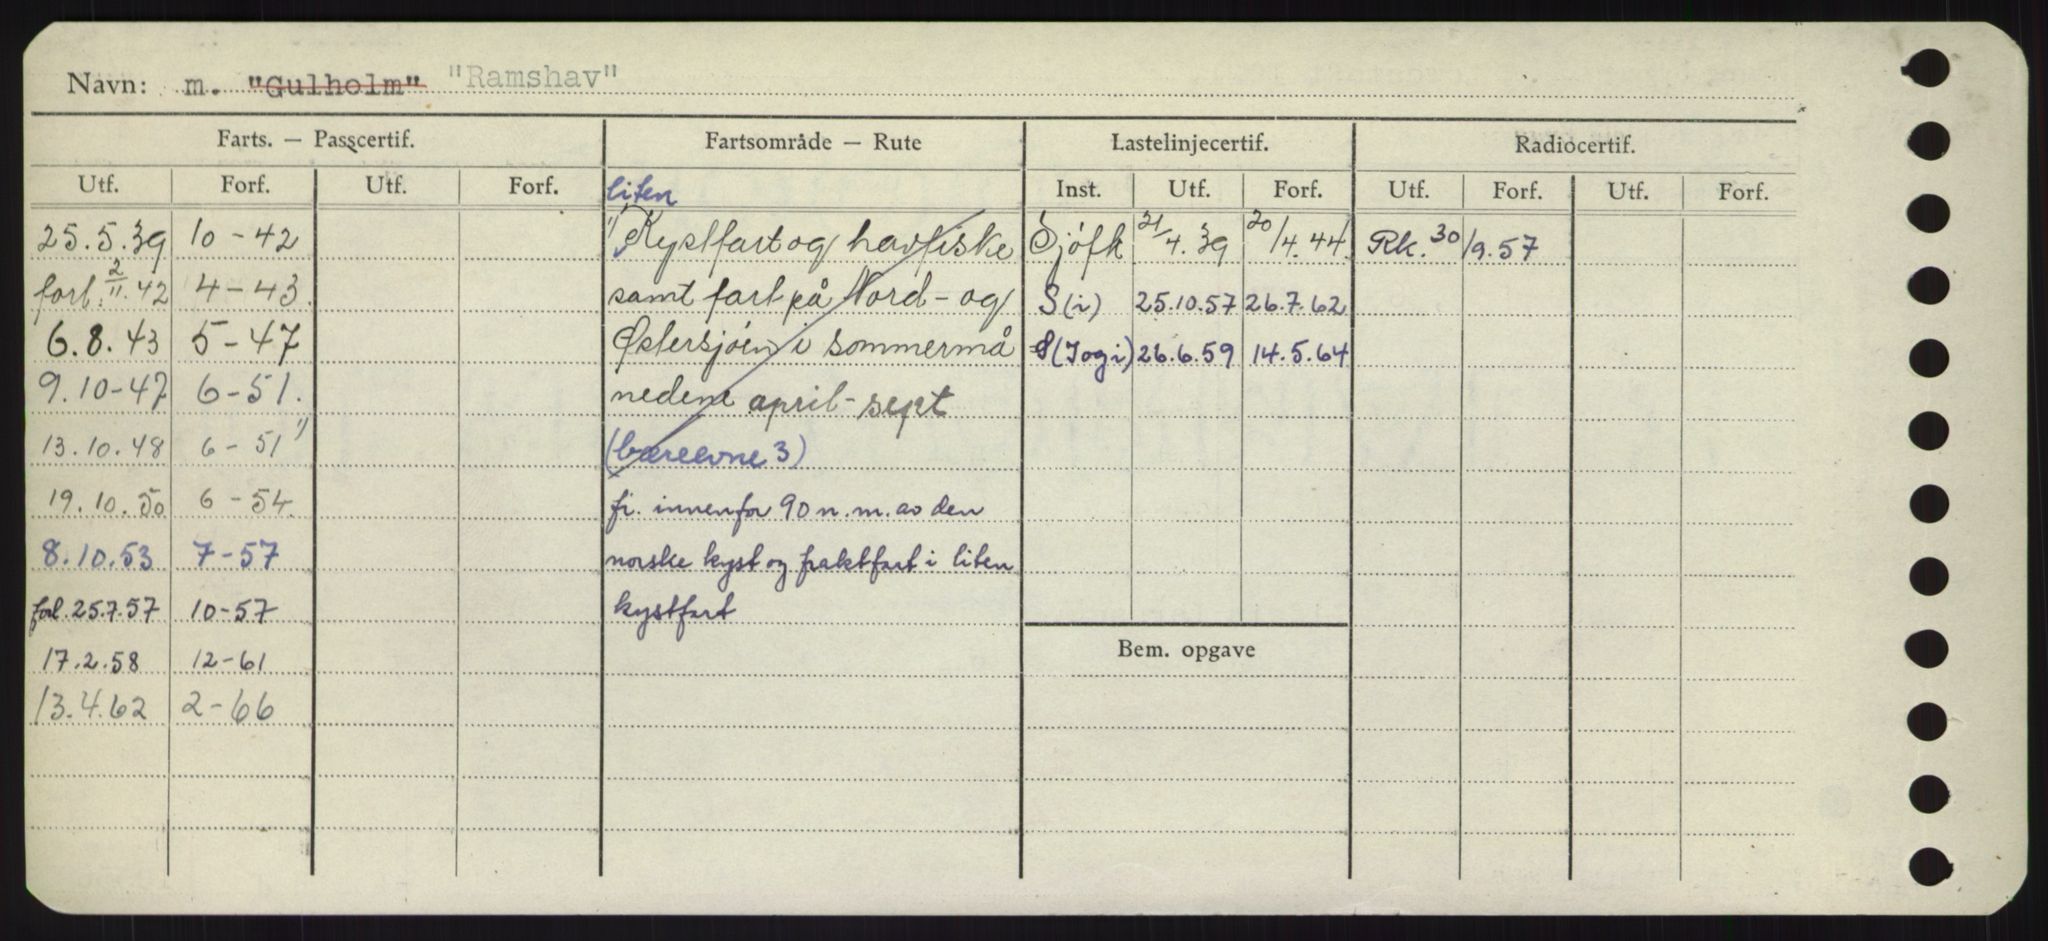 Navn: m. "Gulholm" "Ramshav"
Farts. — Passcertif. Fartsområde — Rute Lastelinjecertif. Radiocertif.
Utf. Forf. Utf. Forf. liten Inst. Utf. Forf. Utf. Forf. Utf. Forf.
25.5.39 10-42 1) Kystfart og havfiske Sjöfk 21/4.39 20/4.44 Rk. 30/9.57
forl. 2/11.42 4-43. samt fart på Nord- og S(i) 25.10.57 26.7.62
6.8.43 5-47 Østersjöen i sommermå S(Iogi) 26.6.59 14.5.64
9.10-47 6-51. nedene april-sept
13.10.48 6-51 1) (bæreevne 3)
19.10.50 6-54. fi. innenfor 90 n.m. av den
8.10.53 7-57 norske kyst og fraktfart i liten
forl. 25.7.57 10-57 kystfart
17.2.58 12-61 Bem. opgave
13.4.62 2-66